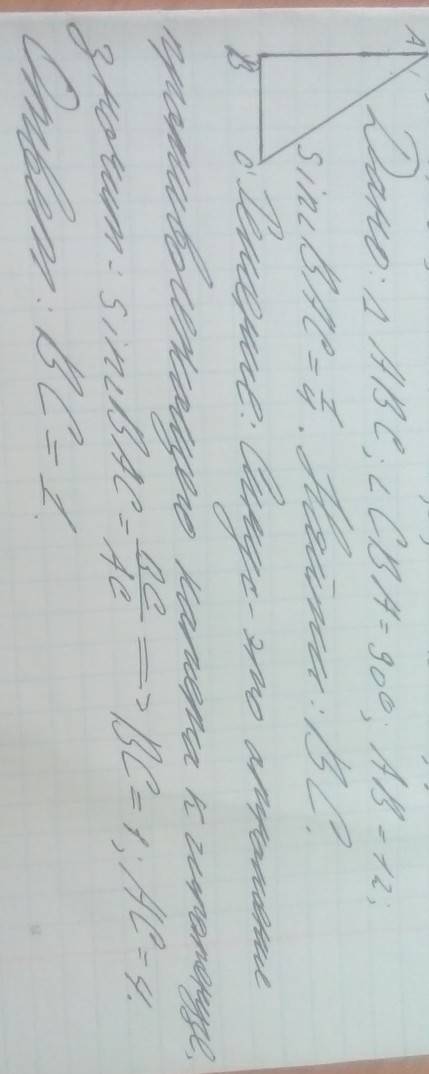 A
B
C
Дано: △ ABC; ∠ CBA = 90°; AB = 12;
sin BAC = 1/4. Найти: BC.
Решение: Синус - это отношение
противолежащего катета к гипотенузе,
значит: sin BAC = BC/AC => BC = 1; AC = 4.
Ответ: BC = 1.